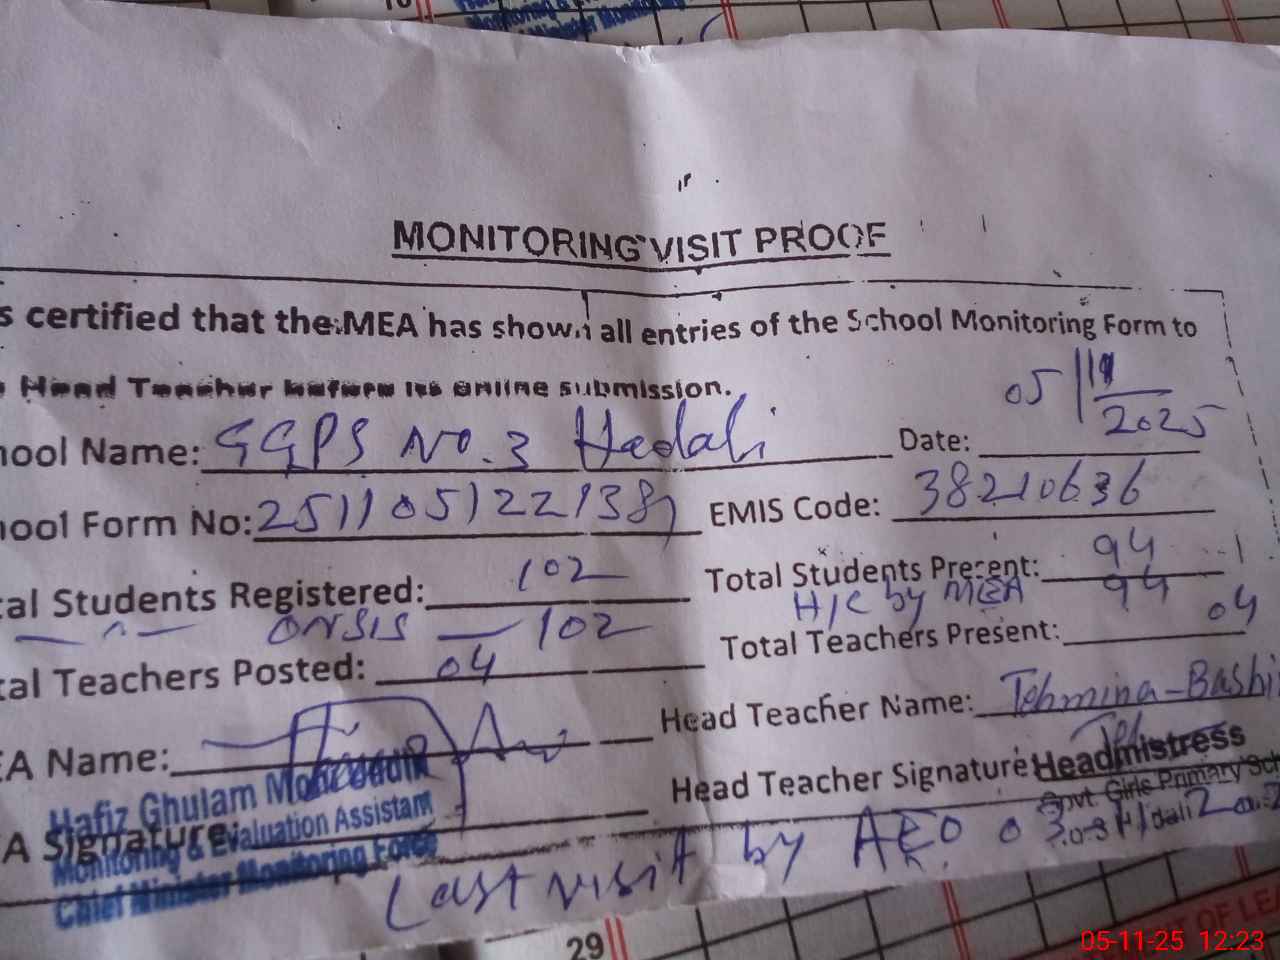 MONITORING VISIT PROOF
s certified that the MEA has shown all entries of the School Monitoring Form to
Head Teacher before its online submission.
05/11/2025
hool Name: GGPS No. 3 Hadali Date:
hool Form No: 251105122138 EMIS Code: 38210636
tal Students Registered: 102 Total Students Present: 94
ONSIS — 102 H/C by MEA 94
tal Teachers Posted: 04 Total Teachers Present: 04
EA Name: Head Teacher Name: Tehmina-Bashi
Hafiz Ghulam
A Signature: Head Teacher Signature Headmistress
Monitoring & Evaluation Assistant
Chief Minister Monitoring Force
Govt. Girls Primary Sch
No.3 H/dali
Last visit by AEO 03
29
OF LEA
05-11-25 12:23